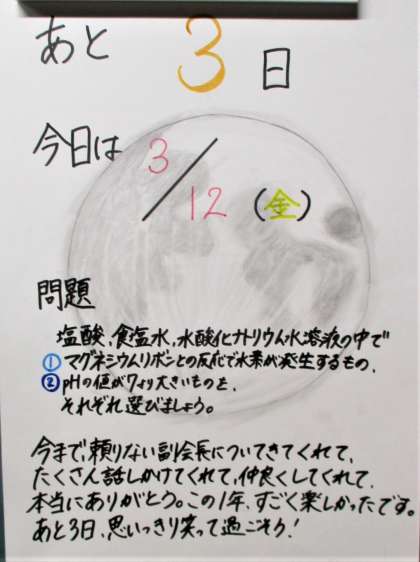 あと 3 日
今日は 3/12 (金)
問題
塩酸、食塩水、水酸化ナトリウム水溶液の中で
① マグネシウムリボンとの反応で水素が発生するもの、
② pHの値が7より大きいものを、
それぞれ選びましょう。
今まで、頼りない副会長についてきてくれて、
たくさん話しかけてくれて、仲良くしてくれて、
本当にありがとう。この1年、すごく楽しかったです。
あと3日、思いっきり笑って過ごそう!